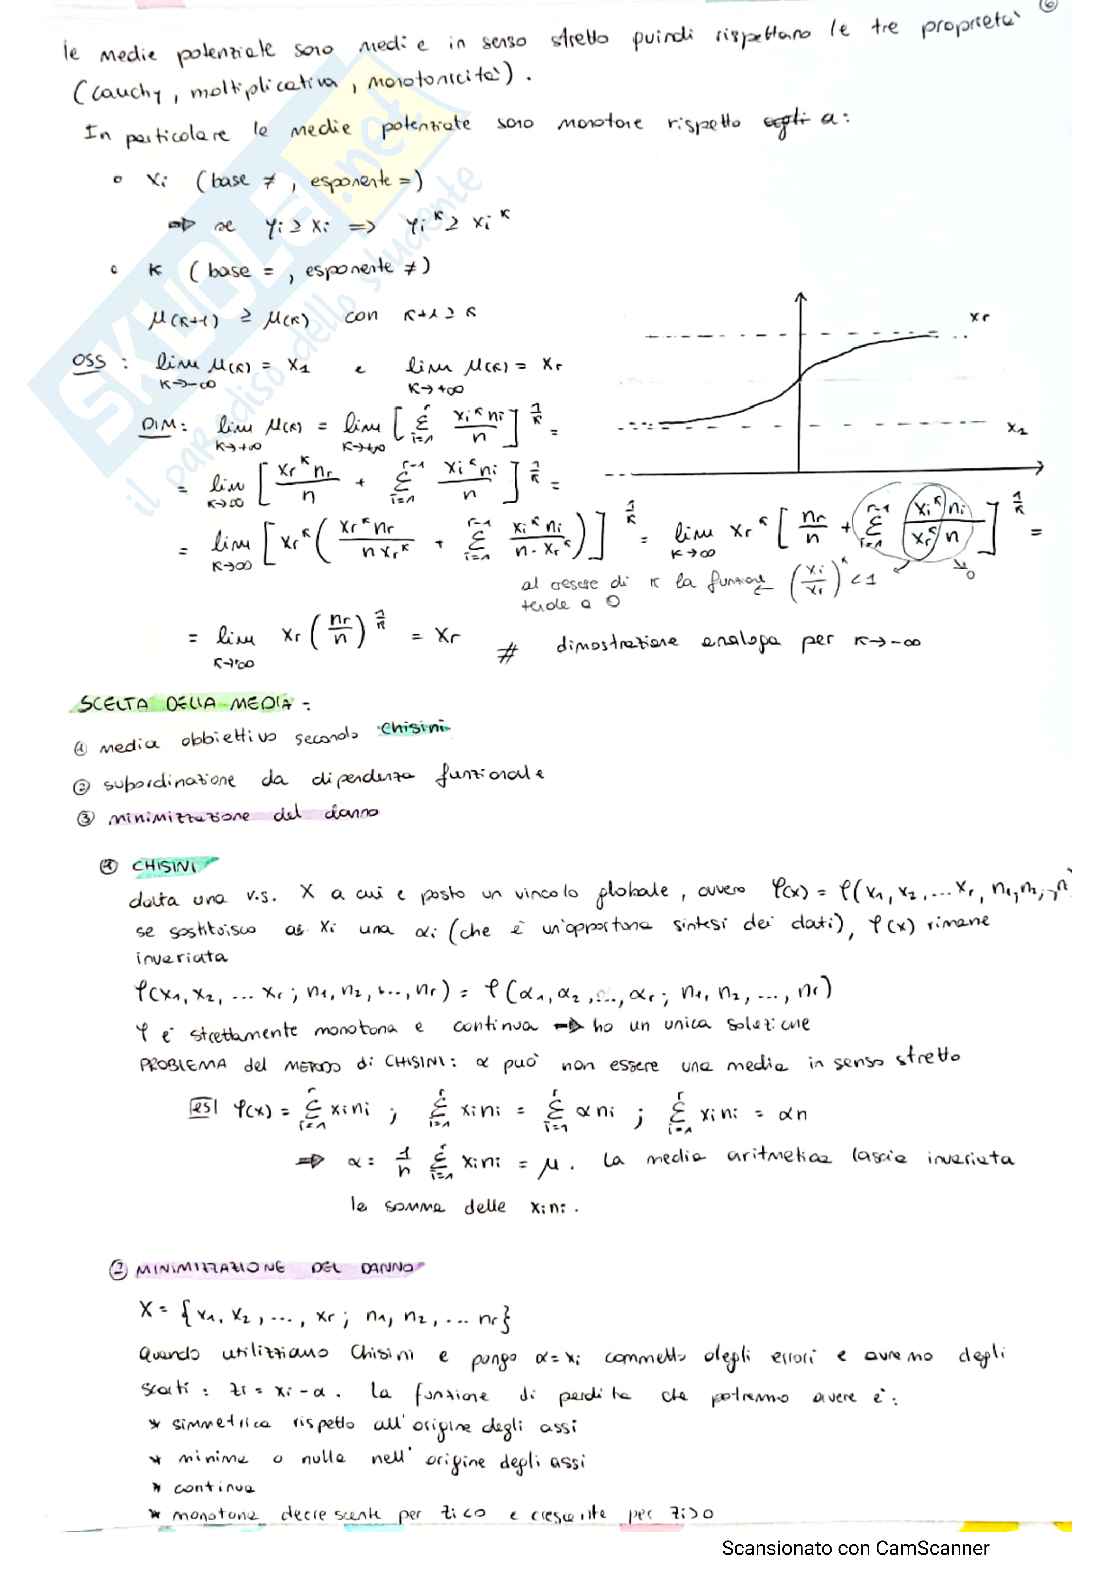 6
le medie potenziate sono medie in senso stretto quindi rispettano le tre proprietà
(Cauchy, moltiplicativa, monotonicità).
In particolare le medie potenziate sono monotone rispetto a:
° xi (base ≠, esponente =)
⇒ se yi ≥ xi => yi^k ≥ xi^k
° k (base =, esponente ≠)
μ(k+1) ≥ μ(k) con k+1 ≥ k
OSS: lim k→-∞ μ(k) = x1 e lim k→+∞ μ(k) = xr
xr
x1
DIM: lim k→+∞ μ(k) = lim k→+∞ [Σ i=1 r xi^k ni / n]^1/k =
= lim k→∞ [xr^k nr / n + Σ i=1 r-1 xi^k ni / n]^1/k =
= lim k→∞ [xr^k (xr^k nr / n xr^k + Σ i=1 r-1 xi^k ni / n · xr^k)]^1/k = lim k→∞ xr^k [nr/n + Σ i=1 r-1 xi^k ni / xr^k n]^1/k =
al crescere di k la funzione (xi/xr)^k < 1 → 0
tende a 0
= lim k→+∞ xr (nr/n)^1/k = xr # dimostrazione analoga per k→-∞
SCELTA DELLA MEDIA:
① media obbiettivo secondo Chisini
② subordinazione da dipendenza funzionale
③ minimizzazione del danno
① CHISINI
data una v.s. X a cui è posto un vincolo globale, ovvero φ(x) = φ(x1, x2, ... xr, n1, n2, ., n
se sostituisco ad xi una αi (che è un'opportuna sintesi dei dati), φ(x) rimane
invariata
φ(x1, x2, ... xr; n1, n2, ..., nr) = φ(α1, α2, ..., αr; n1, n2, ..., nr)
φ è strettamente monotona e continua ⇒ ho un unica soluzione
PROBLEMA del METODO di CHISINI: α può non essere una media in senso stretto
es| φ(x) = Σ i=1 r xini ; Σ i=1 r xini = Σ i=1 r αni ; Σ i=1 r xini = αn
⇒ α = 1/n Σ i=1 r xini = μ. La media aritmetica lascia invariata
la somma delle xini.
② MINIMIZZAZIONE DEL DANNO
X = {x1, x2, ..., xr; n1, n2, ... nr}
Quando utilizziamo Chisini e pongo α=xi commetto degli errori e avremo degli
scarti: zi = xi - α. La funzione di perdita che potremo avere è:
* simmetrica rispetto all'origine degli assi
* minima o nulla nell'origine degli assi
* continua
* monotona decrescente per zi<0 e crescente per zi>0
SKUOLA.net
il paradiso dello studente
Scansionato con CamScanner